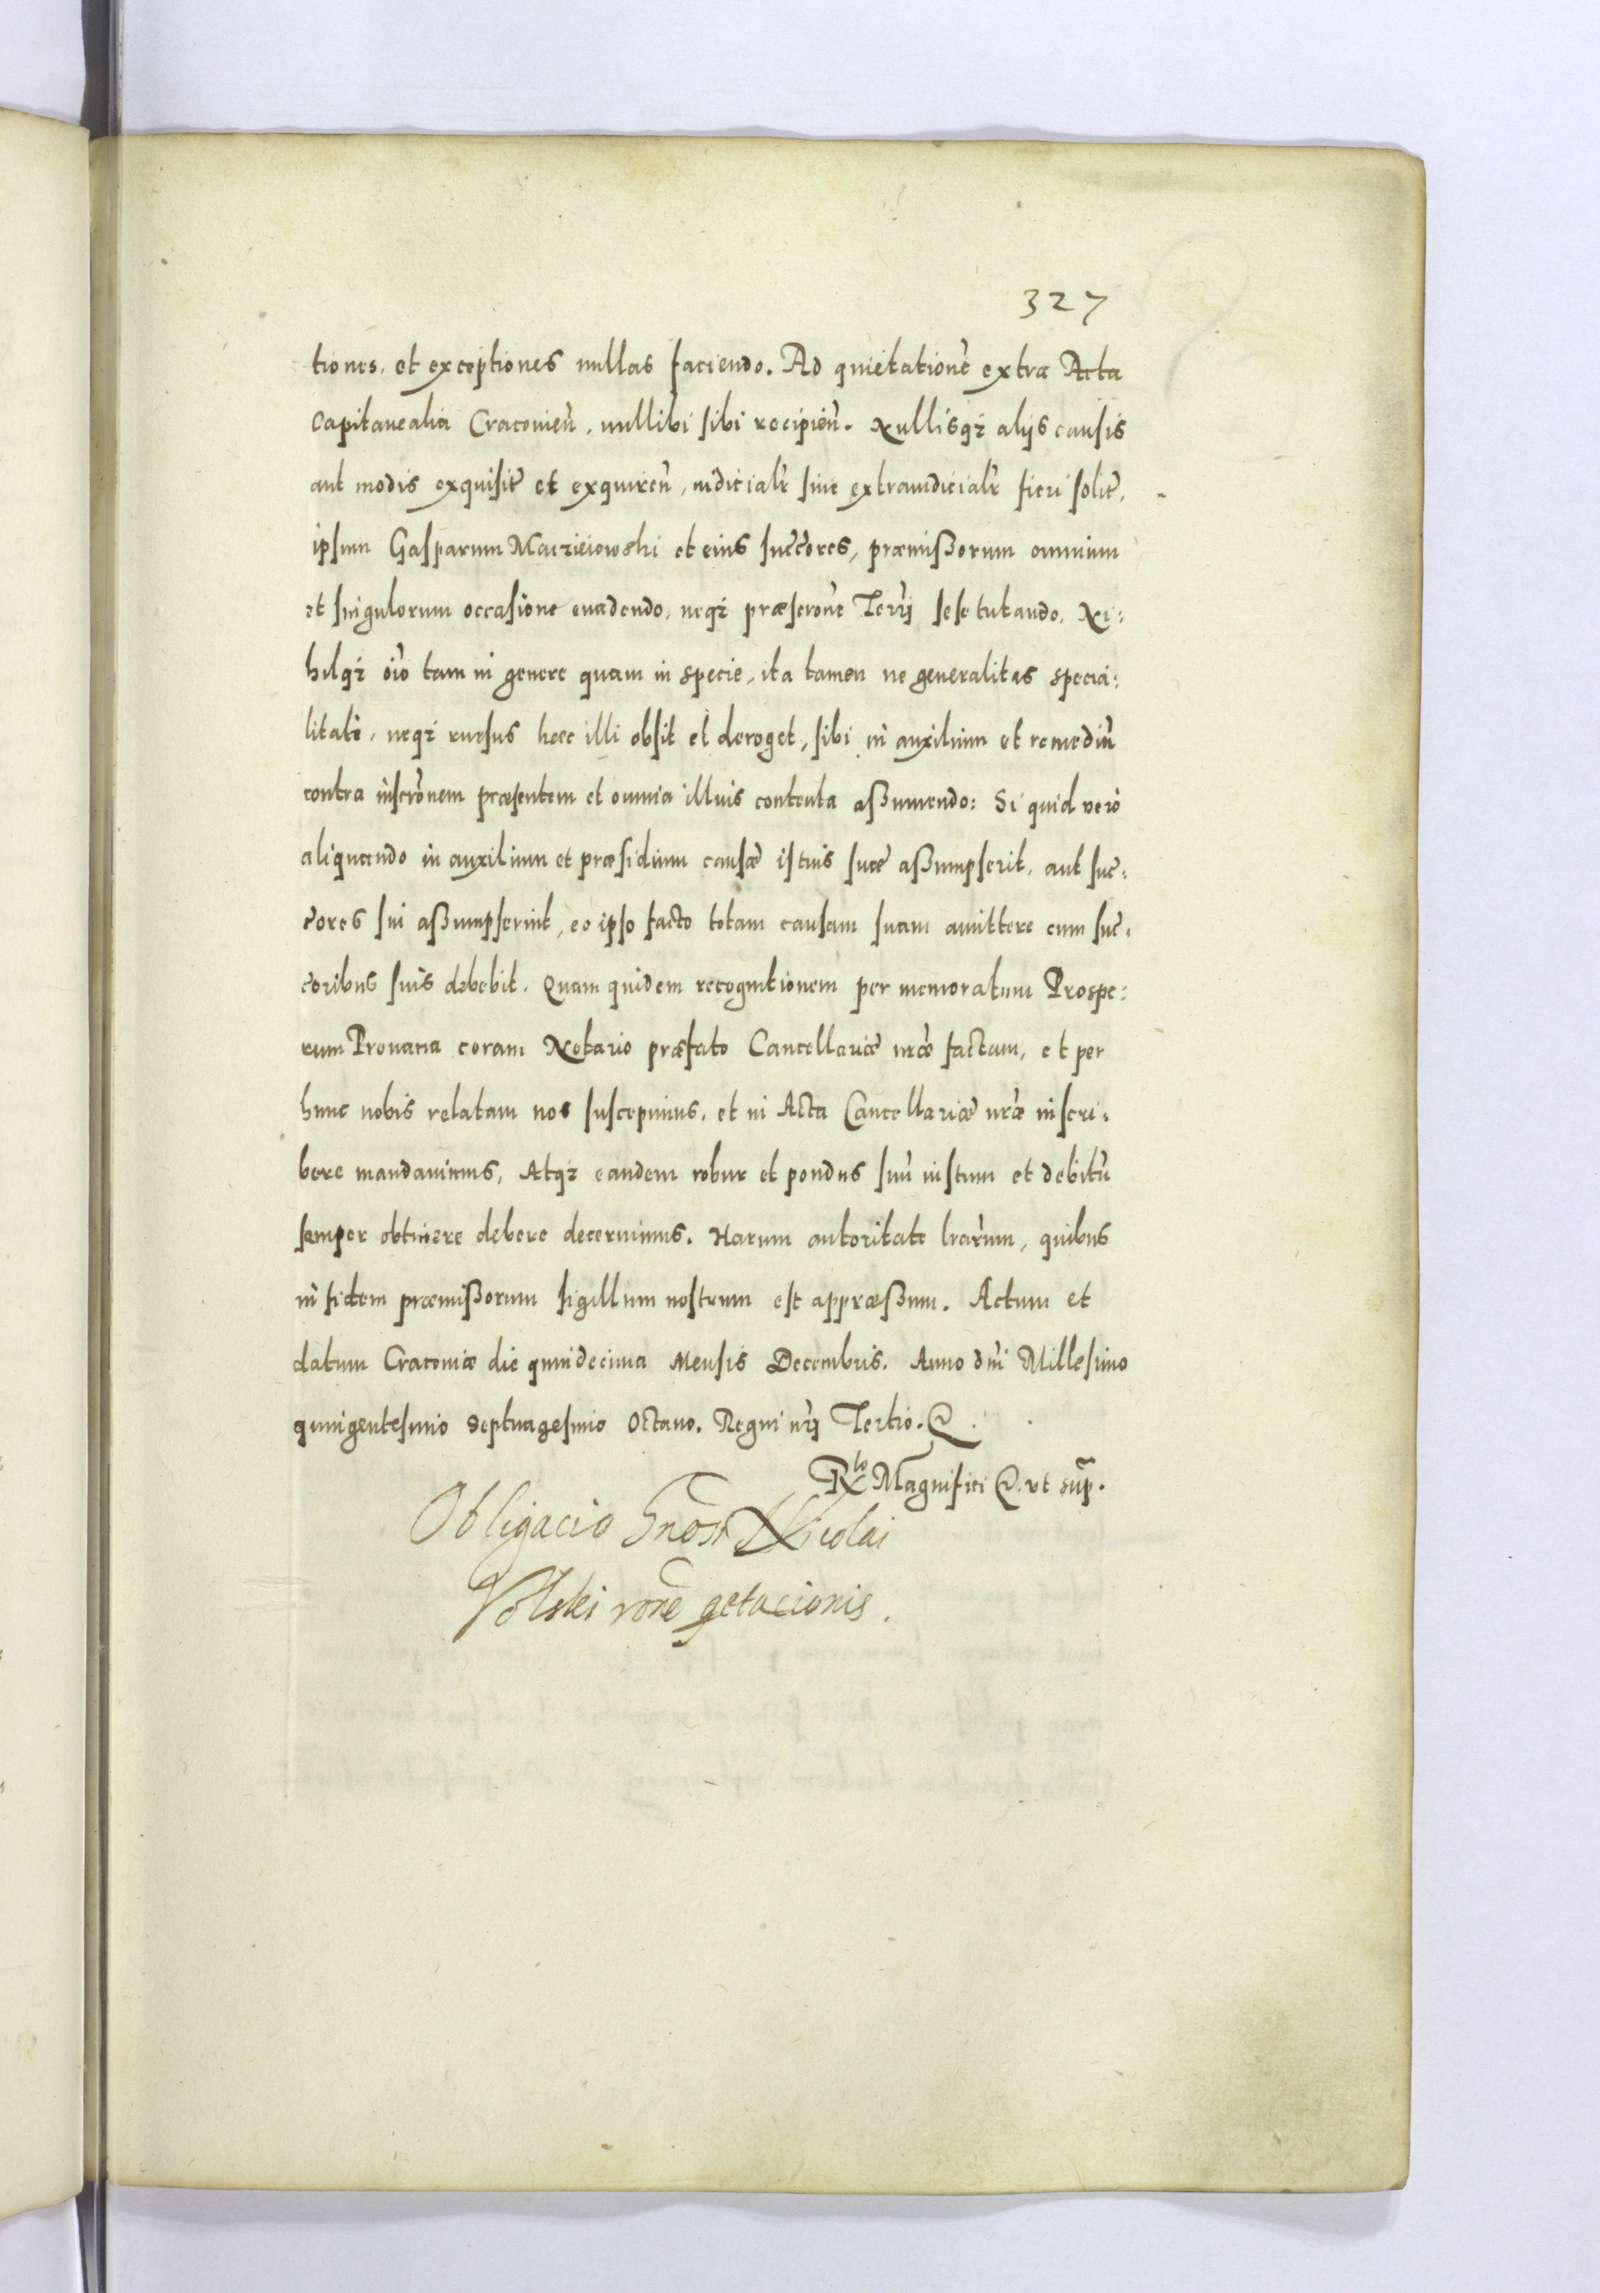 327
tiones, et exceptiones nullas faciendo. Ad quietationē extra Acta
Capitanealia Cracovien̄, nullibi sibi recipien̄. Nullisqꝫ alijs causis
aut modis exquisit̄ et exquiren̄, iudicialr̄ siue extraiudicialr̄ fieri solit̄,
ipsum Gasparum Macziejowski et eius succ̄ores, præmissorum omnium
et singulorum occasione euadendo, neqꝫ præscr̄one Terr̄ij sese tutando, Ni:
hilqꝫ oīo tam in genere quam in specie, ita tamen ne generalitas specia:
litati, neqꝫ rursus hæc illi obsit et deroget, sibi in auxilium et remediū
contra inscr̄onem præsentem et omnia illius contenta assumendo: Si quid vero
aliquando in auxilium et præsidium causæ istius suæ assumpserit, aut suc:
c̄ores sui assumpserint, eo ipso facto totam causam suam amittere cum suc:
c̄oribus suis debebit. Quam quidem recognitionem per memoratum Prospe:
rum Prouana coram Notario præfato Cancellariæ nr̄æ factam, et per
hunc nobis relatam nos suscepimus, et in Acta Cancellariæ nr̄æ inscri:
bere mandauimus, Atqꝫ eandem robur et pondus suū iustum et debitū
semper obtinere debere decernimus. Harum autoritate lr̄arum, quibus
in fidem præmissorum sigillum nostrum est appræssum. Actum et
datum Cracouiæ die quindecima Mensis Decembris. Anno dn̄i Millesimo
quingentesimo Septuagesimo Octauo. Regni nr̄j Tertio. &
R̄lo Magnifici &. vt sup̄.
Obligacio Gn̄osi Nicolai
Volski rōne qetacionis.